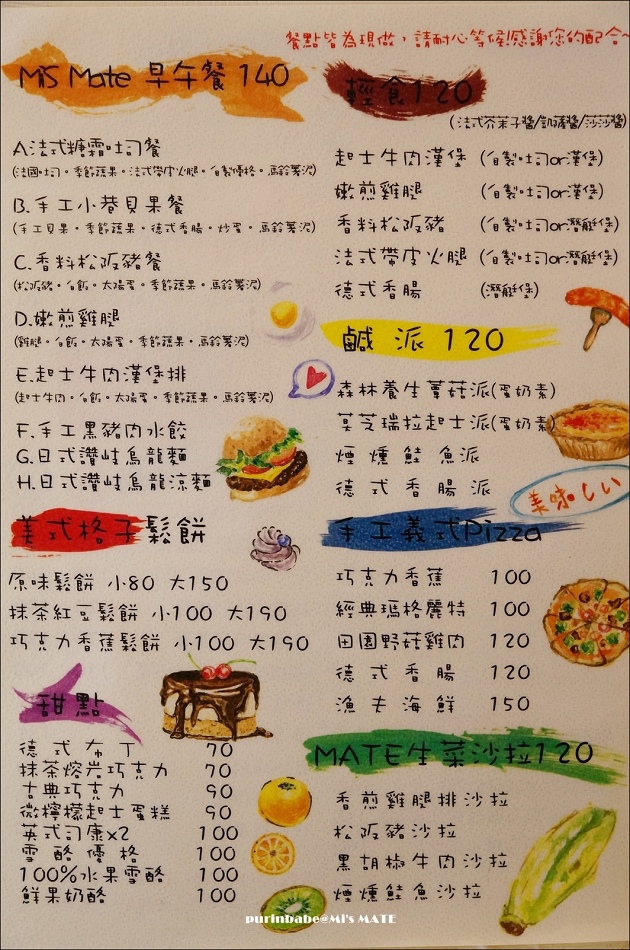 餐點皆為現做，請耐心等候!感謝您的配合~
MiS Mate 早午餐 140
A.法式糖霜吐司餐
(法國吐司。季節蔬果。法式帶皮火腿。自製優格。馬鈴薯泥)
B.手工小巷貝果餐
(手工貝果。季節蔬果。德式香腸。炒蛋。馬鈴薯泥)
C.香料松阪豬餐
(松阪豬。白飯。太陽蛋。季節蔬果。馬鈴薯泥)
D.嫩煎雞腿
(雞腿。白飯。太陽蛋。季節蔬果。馬鈴薯泥)
E.起士牛肉漢堡排
(起士牛肉。白飯。太陽蛋。季節蔬果。馬鈴薯泥)
F.手工黑豬肉水餃
G.日式讚岐烏龍麵
H.日式讚岐烏龍涼麵
美式格子鬆餅
原味鬆餅 小80 大150
抹茶紅豆鬆餅 小100 大190
巧克力香蕉鬆餅 小100 大190
甜點
德式布丁 70
抹茶熔岩巧克力 70
古典巧克力 90
微檸檬起士蛋糕 90
英式司康x2 100
雪酪優格 100
100%水果雪酪 100
鮮果奶酪 100
輕食120
(法式芥茉子醬/凱薩醬/莎莎醬)
起士牛肉漢堡 (自製吐司or漢堡)
嫩煎雞腿 (自製吐司or漢堡)
香料松阪豬 (自製吐司or潛艇堡)
法式帶皮火腿 (自製吐司or潛艇堡)
德式香腸 (潛艇堡)
鹹派 120
森林養生蕈菇派(蛋奶素)
莫芝瑞拉起士派(蛋奶素)
煙燻鮭魚派
德式香腸派
美味しい
手工義式Pizza
巧克力香蕉 100
經典瑪格麗特 100
田園野菇雞肉 120
德式香腸 120
漁夫海鮮 150
MATE生菜沙拉120
香煎雞腿排沙拉
松阪豬沙拉
黑胡椒牛肉沙拉
煙燻鮭魚沙拉
purinbabe@MI's MATE